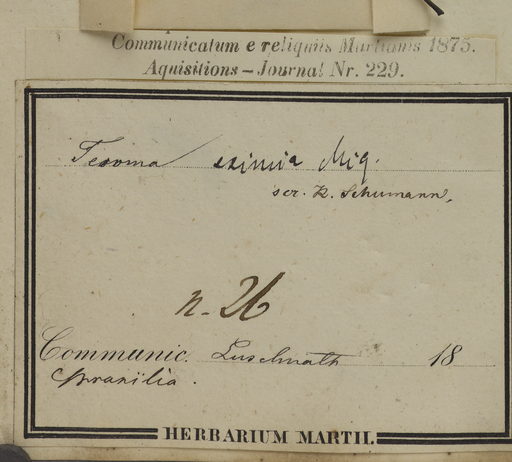 Communicatum e reliquiis Martianis 1875.
Aquisitions – Journal Nr. 229.
Tecoma eximia Miq.
scr. K. Schumann.
n. 26
Communic. Luschnath 18
Brasilia.
HERBARIUM MARTII.